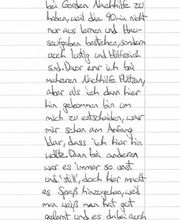 bei Gorden Nachhilfe zu
haben, weil die 90min nicht
nur aus lernen und Haus-
aufgaben bestehen, sondern
auch lustig und hilfreich
sind. Zwar war ich bei
meheren Nachhilfe Plätzen,
aber als ich dann hier
hin gekommen bin um
mich zu entscheiden, war
mir schon am Anfang
klar, dass ich hier hin
wollte. Denn bei anderen
war es immer so
und "still", doch hier macht
es Spaß hinzugehen, weil
man weiß man hat gut
gelernt und es dabei auch